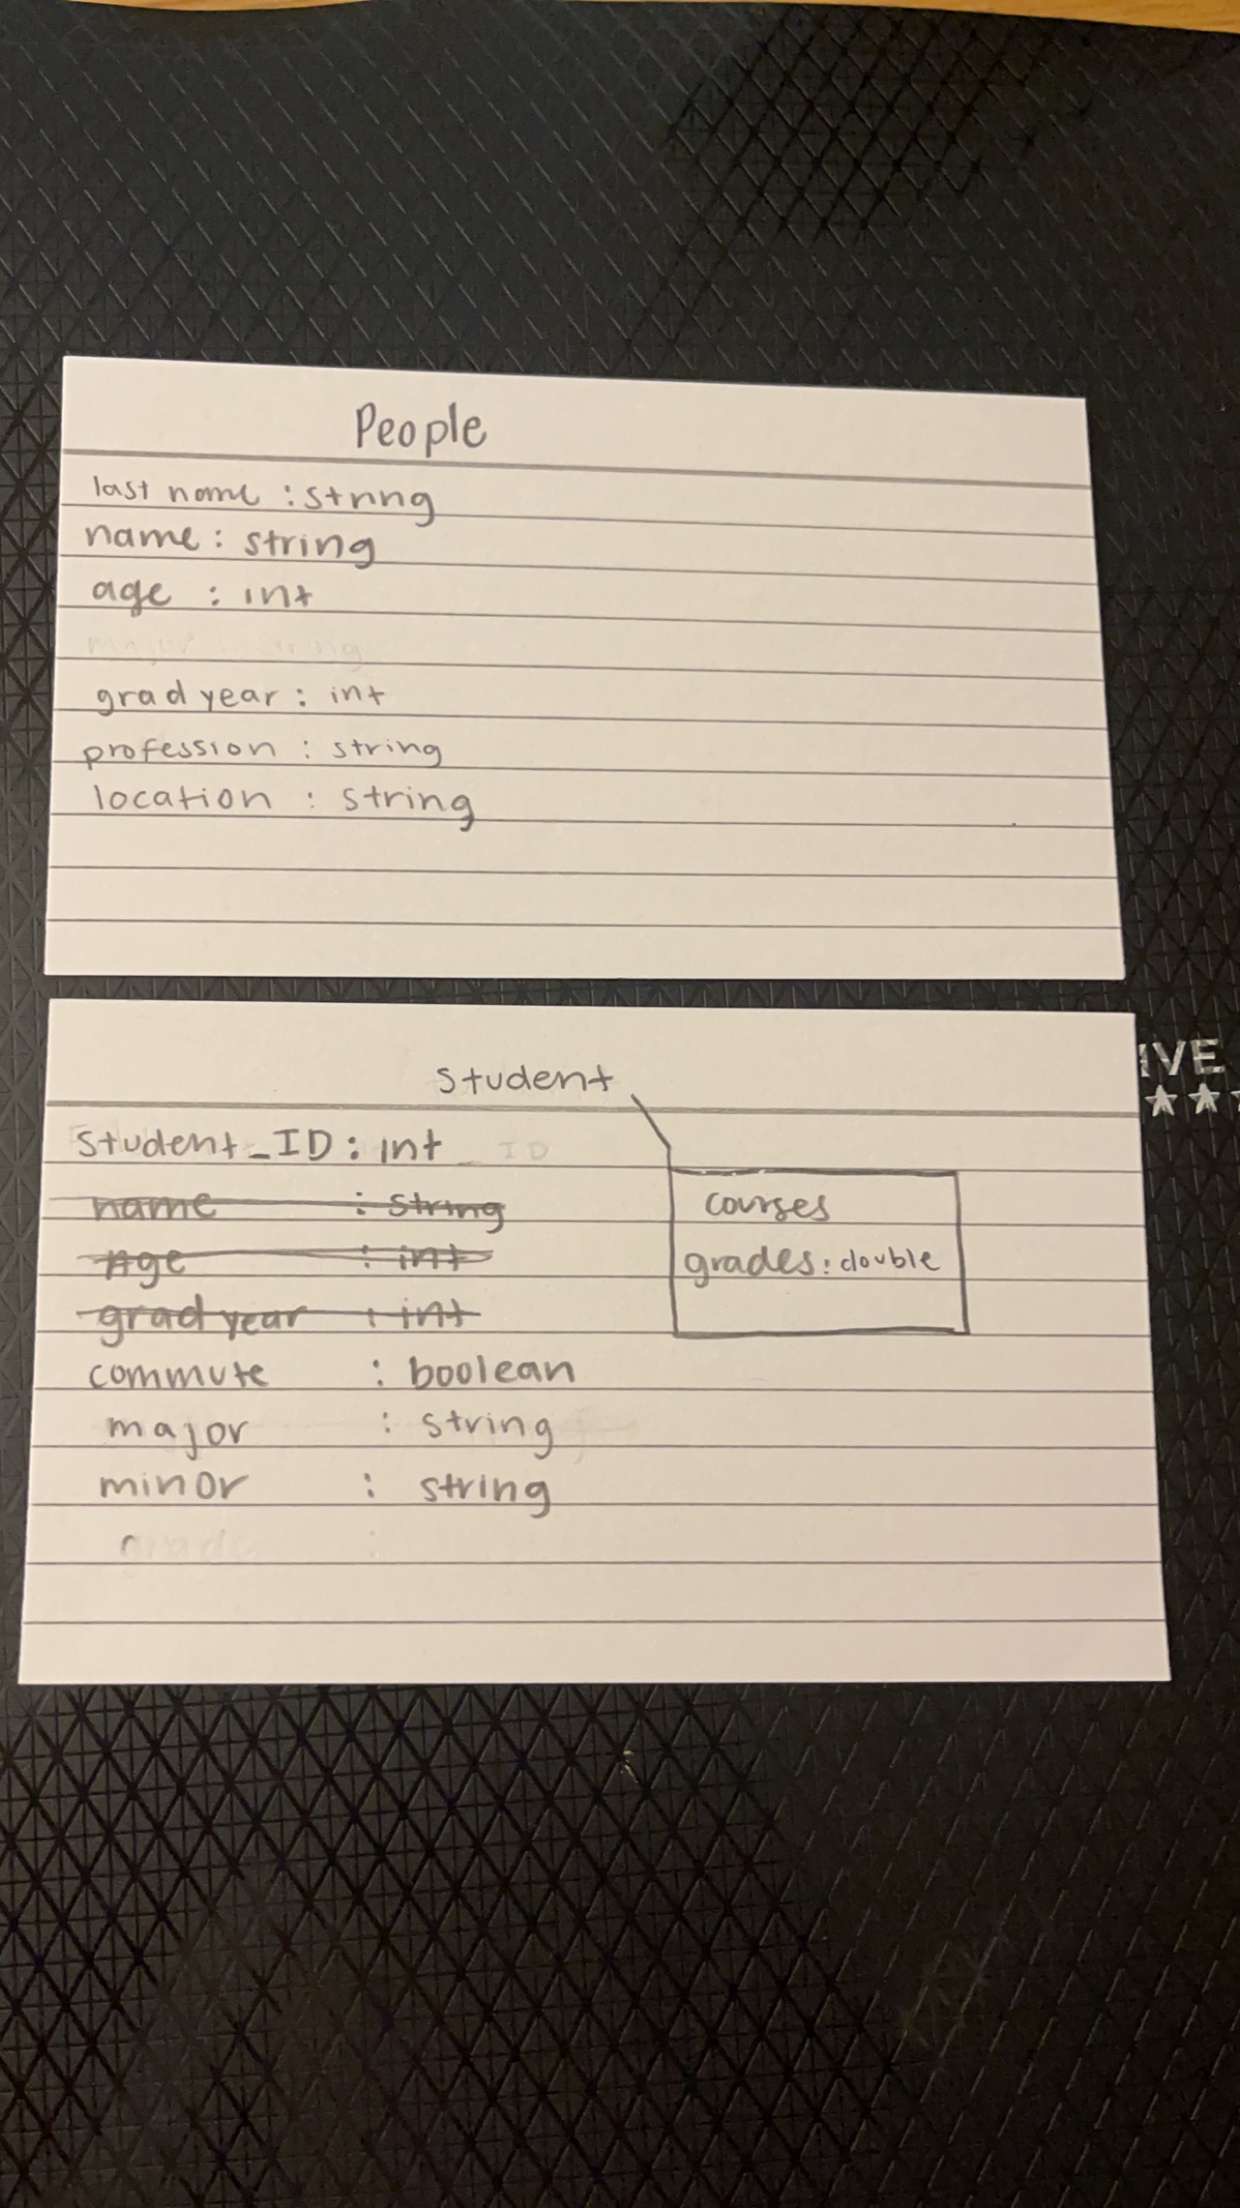 People
last name : string
name : string
age : int
grad year : int
profession : string
location : string
student
student_ID : int
name : string
age : int
grad year : int
commute : boolean
major : string
minor : string
courses
grades : double
IVE